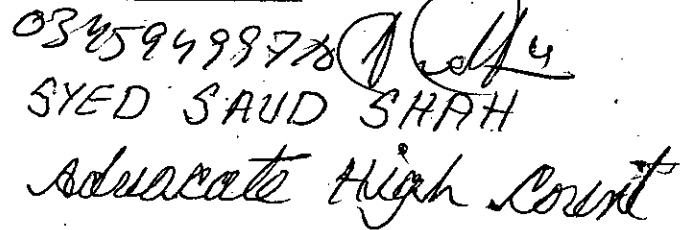 03459499778
SYED SAUD SHAH
Advocate High Court